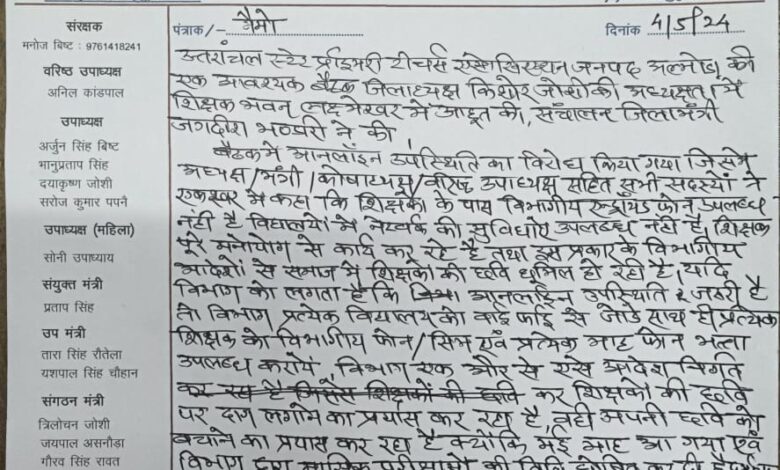 संरक्षक
मनोज बिष्ट : 9761418241
वरिष्ठ उपाध्यक्ष
अनिल कांडपाल
उपाध्यक्ष
अर्जुन सिंह बिष्ट
भानुप्रताप सिंह
दयाकृष्ण जोशी
सरोज कुमार पपनै
उपाध्यक्ष (महिला)
सोनी उपाध्याय
संयुक्त मंत्री
प्रताप सिंह
उप मंत्री
तारा सिंह रौतेला
यशपाल सिंह चौहान
संगठन मंत्री
त्रिलोचन जोशी
जयपाल असनौड़ा
गौरव सिंह रावत
पत्रांक/- मैमो
दिनांक 4/5/24
उत्तरांचल स्टेट प्राइमरी टीचर्स एसोसिएशन जनपद अल्मोड़ा की
एक आवश्यक बैठक जिलाध्यक्ष किशोर जोशी की अध्यक्षता में
शिक्षक भवन लक्ष्मेश्वर में आहूत की, संचालन जिलामंत्री
जगदीश भण्डारी ने की।
बैठक में आनलाईन उपस्थिति का विरोध किया गया जिसमें
अध्यक्ष/मंत्री/कोषाध्यक्ष/वरिष्ठ उपाध्यक्ष सहित सभी सदस्यों ने
एकस्वर में कहा कि शिक्षकों के पास विभागीय एन्ड्रायड फोन उपलब्ध
नहीं है विद्यालयों में नेटवर्क की सुविधाएं उपलब्ध नहीं है, शिक्षक
पूरे मनोयोग से कार्य कर रहे है तथा इस प्रकार के विभागीय
आदेशों से समाज में शिक्षकों की छवि धूमिल हो रही है, यदि
विभाग को लगता है कि आनलाईन उपस्थिति जरुरी है
तो विभाग प्रत्येक विद्यालय को वाई फाई से जोडे साथ ही प्रत्येक
शिक्षक को विभागीय फोन/सिम एवं प्रत्येक माह फोन भत्ता
उपलब्ध करायें, विभाग एक और से ऐसे आदेश निर्गत
कर रहा है जिससे शिक्षकों की छवि कर शिक्षकों की छवि
पर दाग लगाने का प्रयास कर रहा है, वही अपनी छवि को
बचाने का प्रयास कर रहा है क्योंकि मई माह आ गया एवं
विभाग द्वारा मासिक परीक्षाओं की तिथि